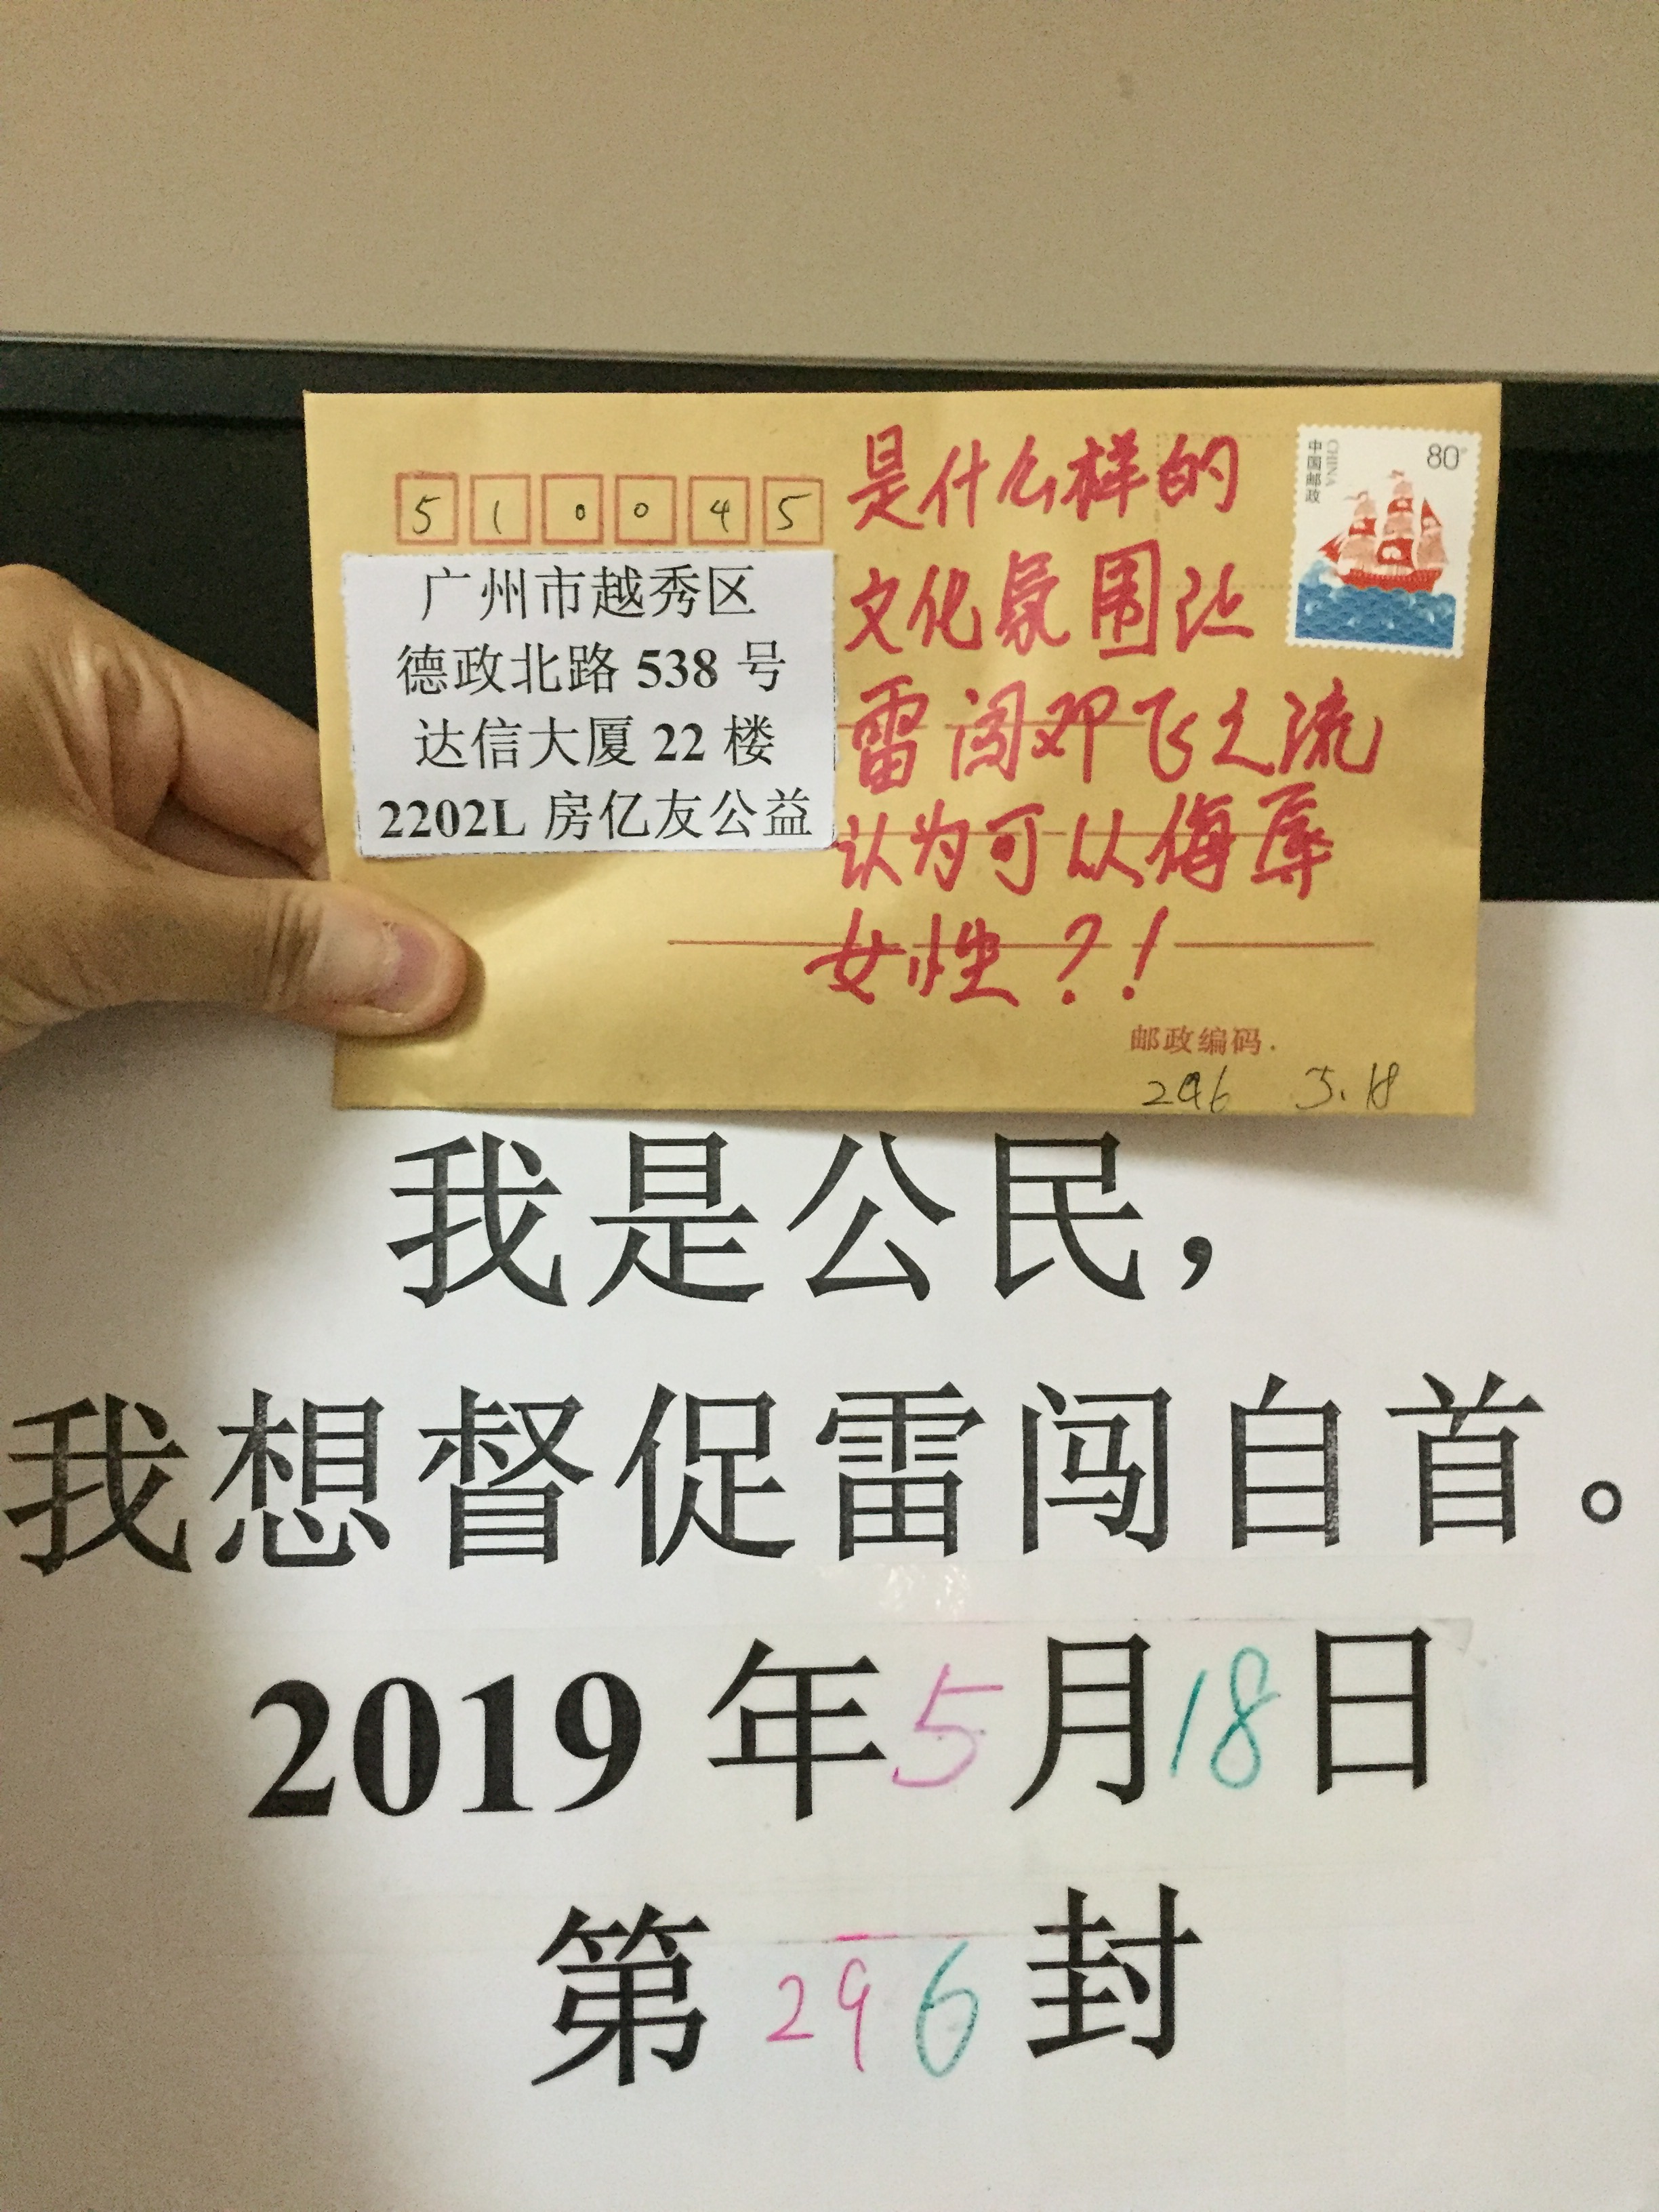 510045
广州市越秀区
德政北路 538 号
达信大厦 22 楼
2202L 房亿友公益
是什么样的
文化氛围让
雷闯邓飞之流
认为可以侮辱
女性?!
中国邮政
CHINA
80
邮政编码.
296 5.18
我是公民,
我想督促雷闯自首。
2019 年 5 月 18 日
第 296 封